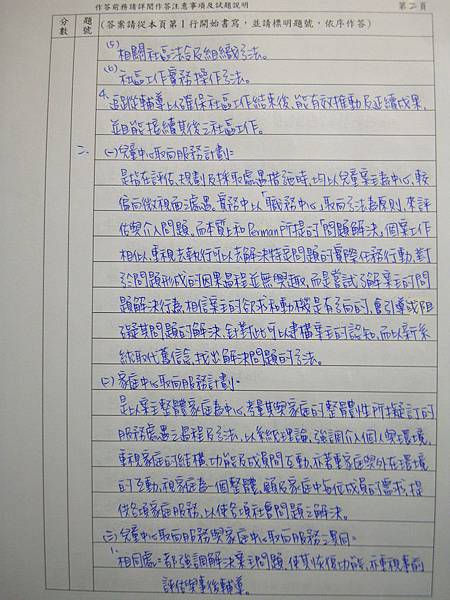 作答前務請詳閱作答注意事項及試題說明 第二頁
分數 題號 (答案請從本頁第1行開始書寫，並請標明題號，依序作答)
(5) 相關社區法令及組織方法。
(6) 社區工作實務操作方法。
4. 追蹤輔導以確保社區工作結束後，能有效推動及延續成果，
並且能接續其後之社區工作。
二、(一)兒童中心取向服務計劃：
是指在評估、規劃及採取處遇措施時，均以兒童案主為中心，較
偏向微視面處遇。實務中以「職務中心」取向方法為原則，來評
估與介入問題。而本質上和Perlman所提的「問題解決」個案工作
相似，重視去執行可以去解決特定問題的實際任務行動，對
於問題形成的因果過程並無興趣，而是嘗試了解案主的問
題解決行為，相信案主的欲求和動機是有方向的，會引導或阻
礙其問題的解決，針對此可以建構案主的認知，而以新系
統取代舊信念，找出解決問題的方法。
(二)家庭中心取向服務計劃：
是以案主整體家庭為中心，考量其與家庭的整體性所擬訂的
服務處遇之過程及方法，以系統理論，強調介入個人與環境，
重視家庭的結構、功能及成員間互動，亦著重家庭與外在環境
的互動，視家庭為一個整體，顧及家庭中每位成員的需求，提
供各項家庭服務，以使各項社會問題之解決。
(三)兒童中心取向服務與家庭中心取向服務之異同：
1. 相同處：都強調解決案主問題，使其恢復功能，亦重視事前
評估與事後輔導。